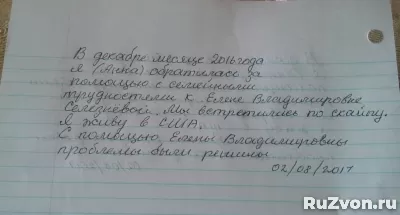 В декабре месяце 2016 года
я (Анна) обратилась за
помощью с семейными
трудностями к Елене Владимировне
Селезневой. Мы встретились по скайпу.
Я живу в США.
С помощью Елены Владимировны
проблемы были решины
02/08/2017
RuZvon.ru